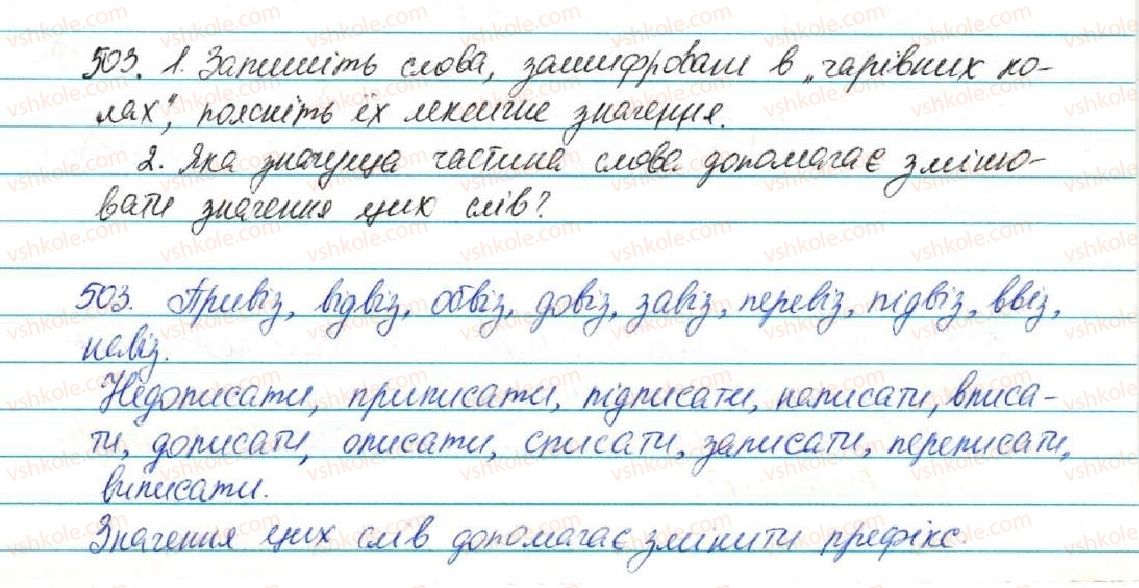 503. 1. Запишіть слова, зашифровані в „чарівних ко-
лах", поясніть їх лексичне значення.
2. Яка значуща частина слова допомагає зміню-
вати значення цих слів?
503. Привіз, відвіз, обвіз, довіз, завіз, перевіз, підвіз, ввіз,
навіз.
Недописати, приписати, підписати, написати, вписа-
ти, дописати, описати, списати, записати, переписати,
виписати.
Значення цих слів допомагає змінити префікс.